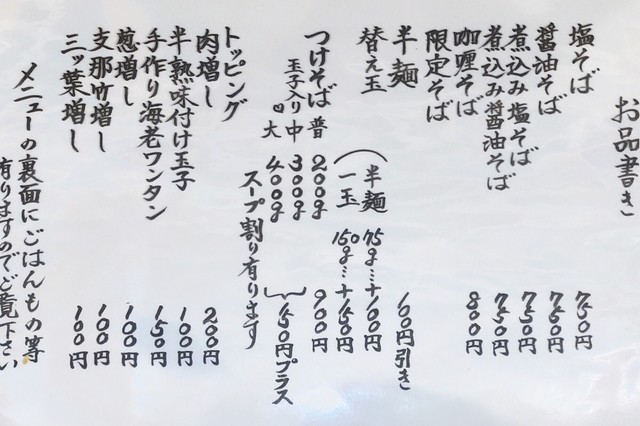 お品書き
塩そば 750円
醤油そば 750円
煮込み塩そば 750円
煮込み醤油そば 750円
咖喱そば 800円
限定そば
半麺 60円引き
替え玉
半麺 75g…+100円
一玉 150g…+150円
つけそば 普 200g 900円
玉子入り 中 300g
大 400g
150円プラス
スープ割り有ります
トッピング
肉増し 200円
半熟味付け玉子 100円
手作り海老ワンタン 150円
葱増し 100円
支那竹増し 100円
三ッ葉増し 100円
メニューの裏面にごはんもの等
有りますのでご覧下さい